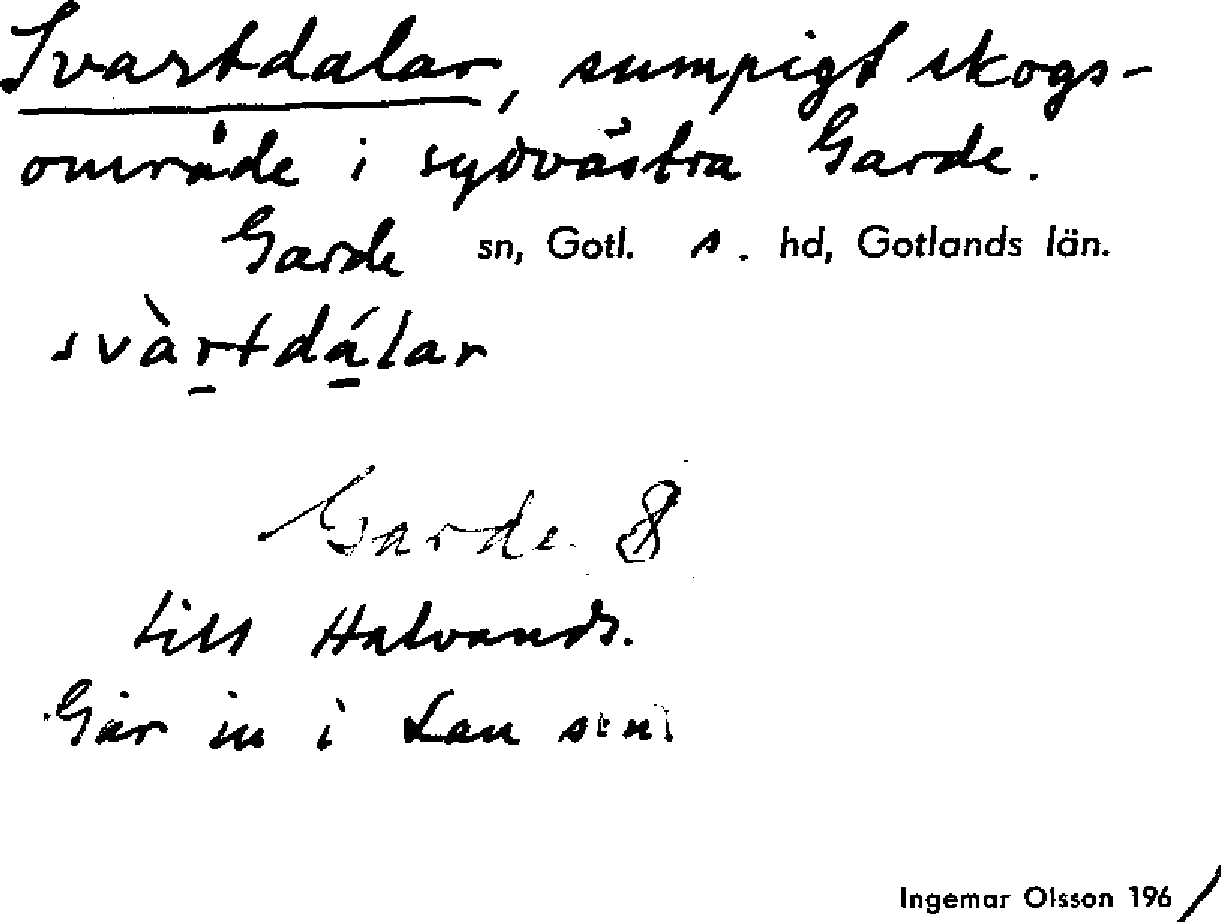 Svartdalar, sumpigt skogs-
område i sydvästra Garde.
Garde sn, Gotl. s. hd, Gotlands län.
svàr̲tdá̲lar
Garde 8
till Halvands.
Går in i Lau
Ingemar Olsson 1961